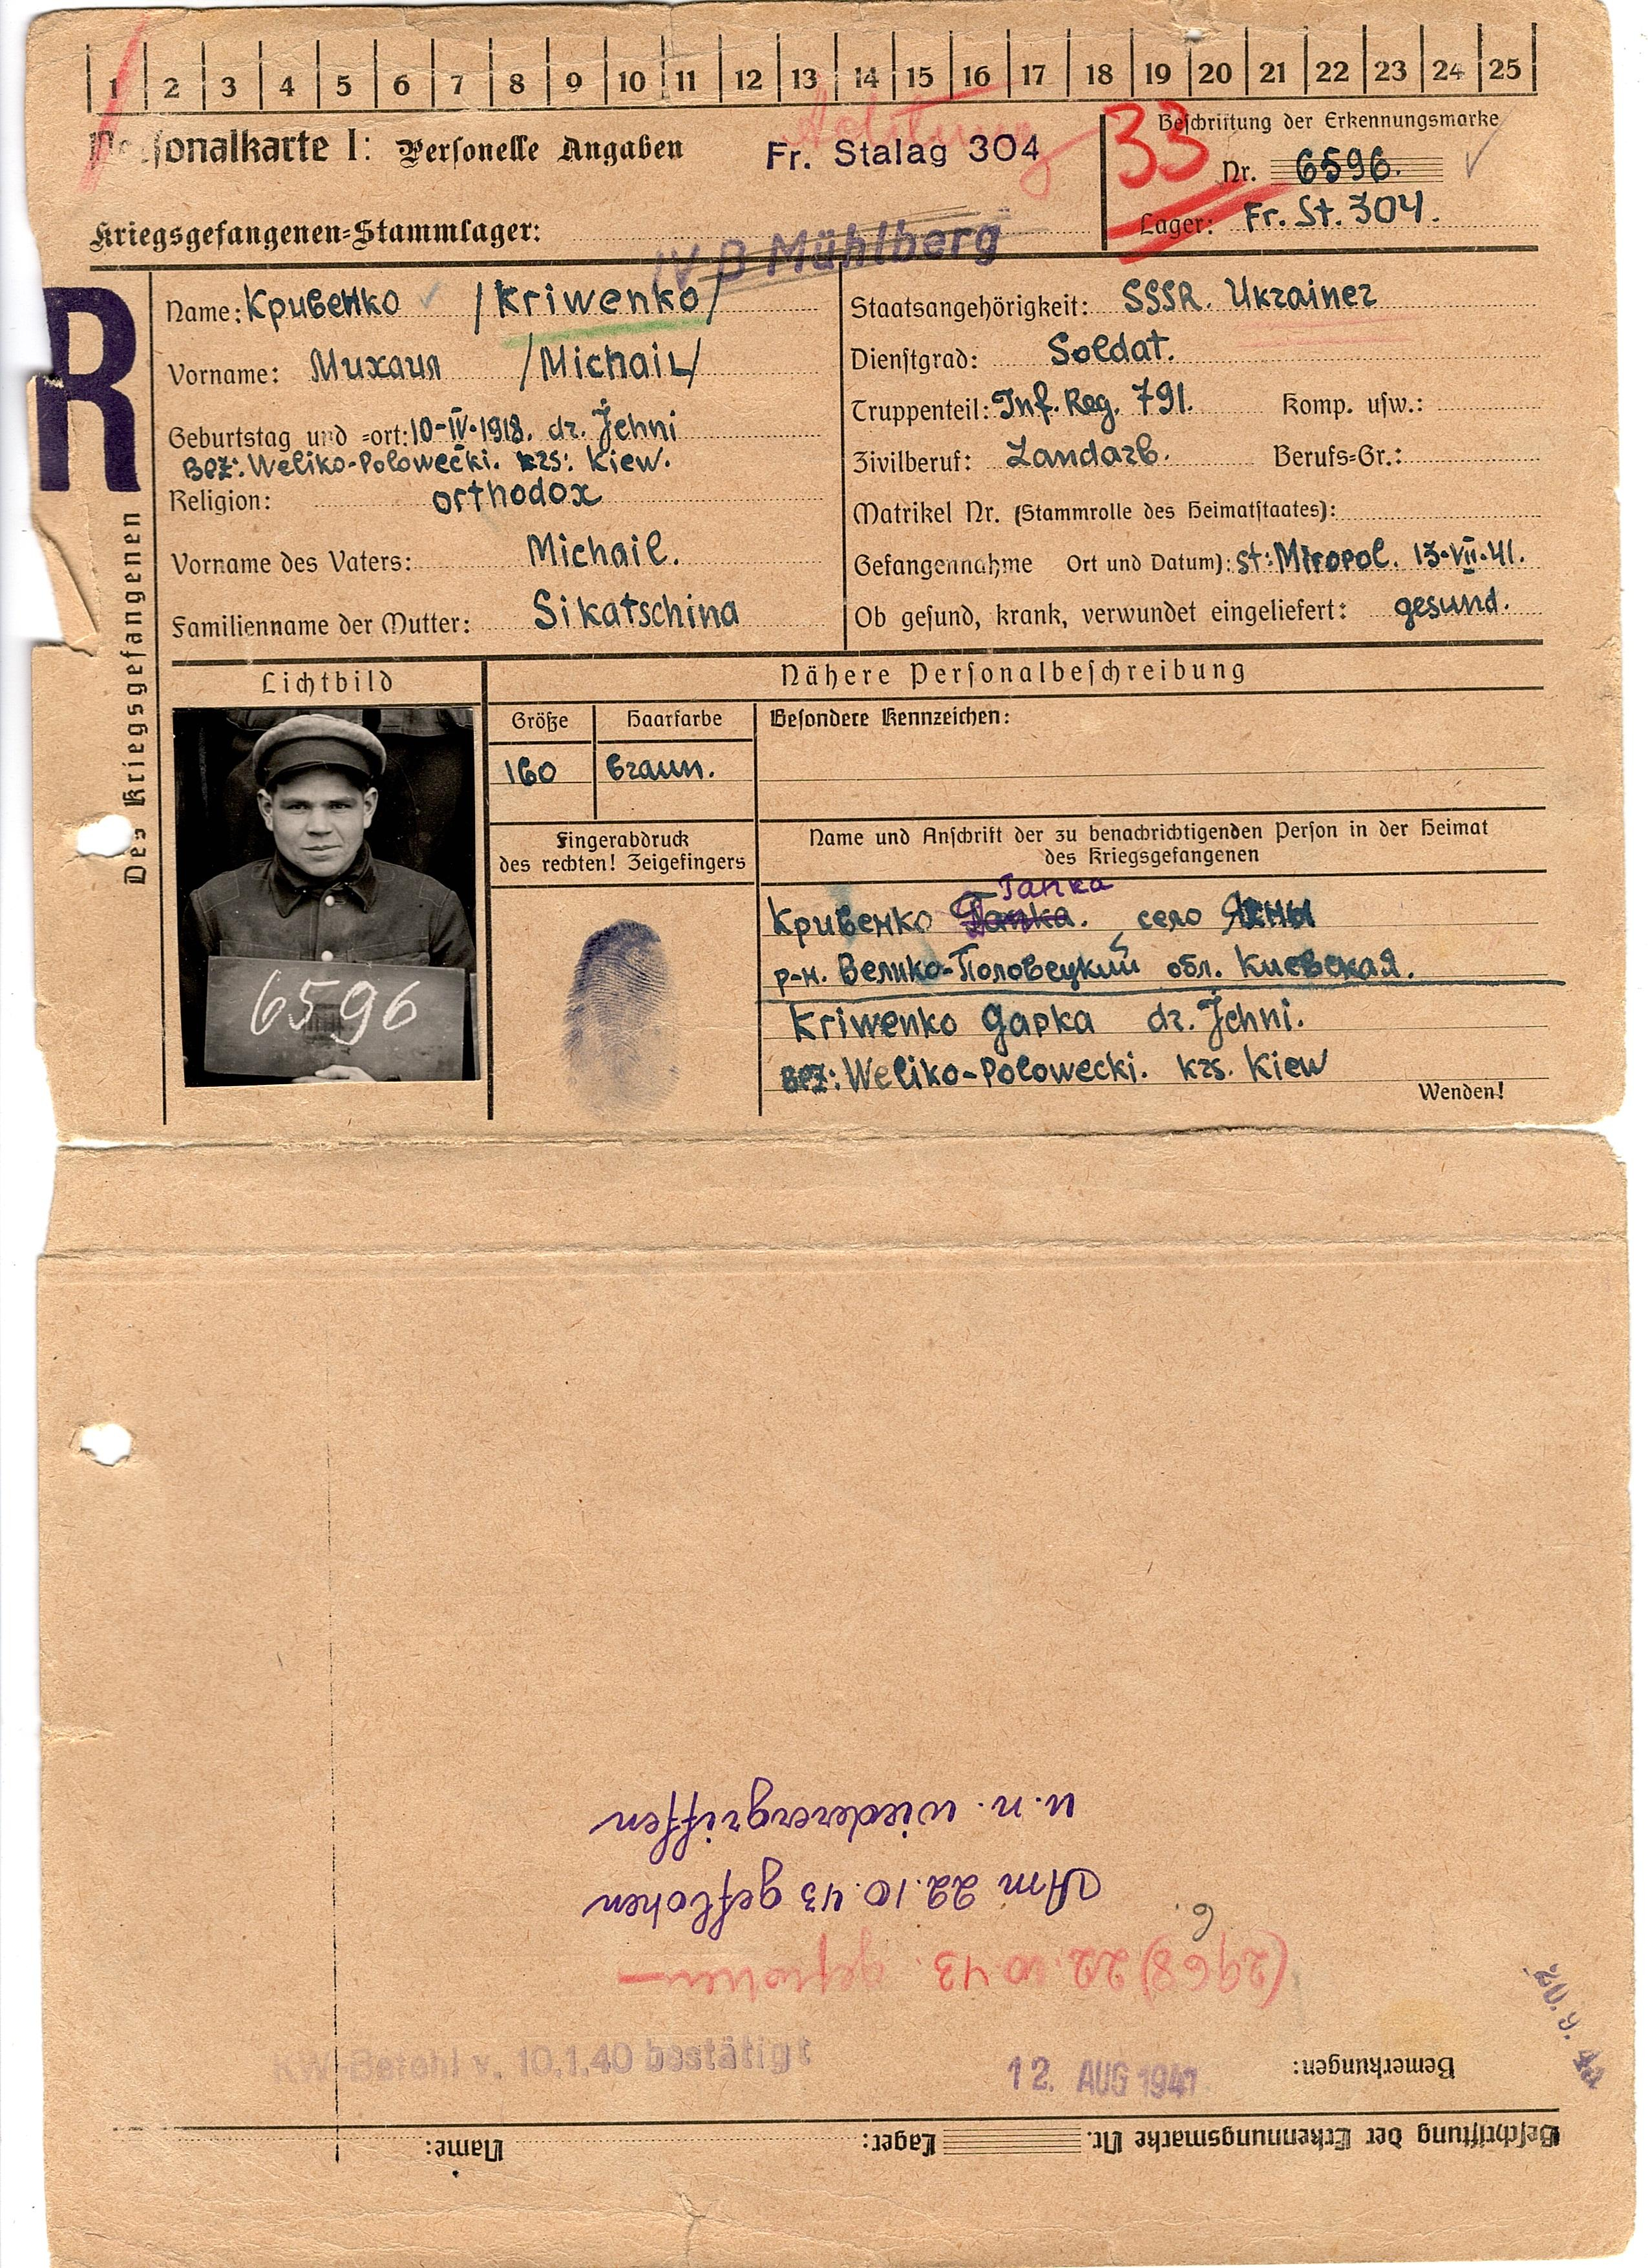 1 2 3 4 5 6 7 8 9 10 11 12 13 14 15 16 17 18 19 20 21 22 23 24 25
Personalkarte I: Personelle Angaben
Fr. Stalag 304
Achtung
33
Beschriftung der Erkennungsmarke
Nr. 6596.
Lager: Fr. St. 304.
Kriegsgefangenen-Stammlager:
IV B Mühlberg
R
Des Kriegsgefangenen
Name: Кривенко /Kriwenko/
Vorname: Михаил /Michail/
Geburtstag und -ort: 10-IV-1918. dr. Jehni
Bez: Weliko-Polowecki. krs: Kiew.
Religion: orthodox
Vorname des Vaters: Michail.
Familienname der Mutter: Sikatschina
Staatsangehörigkeit: SSSR. Ukrainer
Dienstgrad: Soldat.
Truppenteil: Inf. Reg. 791. Komp. usw.:
Zivilberuf: Landarb. Berufs-Gr.:
Matrikel Nr. (Stammrolle des Heimatstaates):
Gefangennahme Ort und Datum): st: Miropol. 13-VII-41.
Ob gesund, krank, verwundet eingeliefert: gesund.
Lichtbild
6596
Nähere Personalbeschreibung
Größe Haarfarbe Besondere Kennzeichen:
160 braun.
Fingerabdruck
des rechten! Zeigefingers
Name und Anschrift der zu benachrichtigenden Person in der Heimat
des Kriegsgefangenen
Гапка
Кривенко Гапка. село Яхны
р-н. Велико-Половецкий обл. Киевская.
Kriwenko Gapka dr. Jehni.
Bez: Weliko-Polowecki. krs. Kiew
Wenden!
Beschriftung der Erkennungsmarke Nr. Lager: Name:
Bemerkungen:
12. AUG 1941
KW Befehl v. 10.1.40 bestätigt
(2968) 22.10 43. geflohen
Am 22.10.43 geflohen
u. n. wiederergriffen